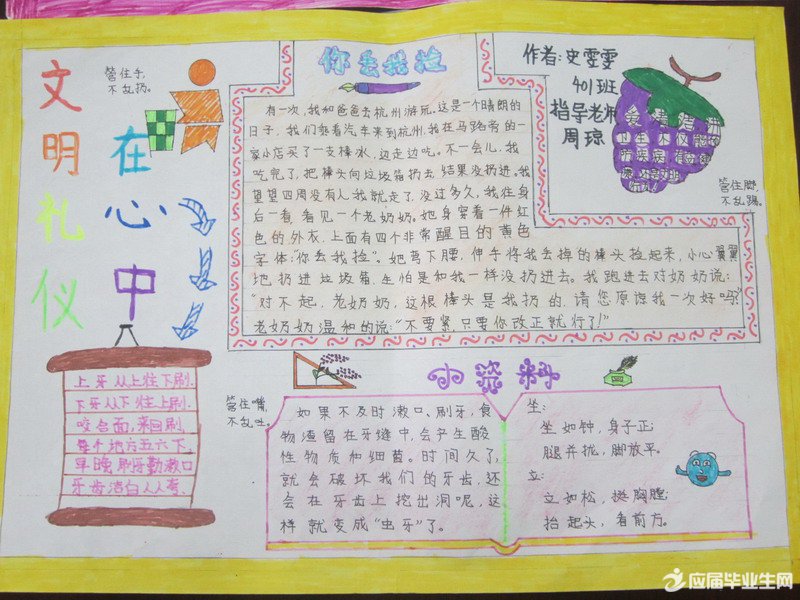 文明礼仪
在心中
管住手,
不乱扔。
你丢我捡
有一次,我和爸爸去杭州游玩。这是一个晴朗的
日子,我们乘着汽车来到杭州,我在马路旁的一
家小店买了一支棒冰,边走边吃。不一会儿,我
吃完了,把棒头向垃圾箱扔去,结果没扔进。我
望望四周没有人,我就走了,没过多久,我往身
后一看,看见一个老奶奶。她身穿着一件红
色的外衣,上面有四个非常醒目的黄色
字体:“你丢我捡”。她弯下腰,伸手将我丢掉的棒头捡起来,小心翼翼
地扔进垃圾箱,生怕是和我一样没扔进去。我跑进去对奶奶说:
“对不起,老奶奶,这根棒头是我扔的,请您原谅我一次好吗?”
老奶奶温和的说:“不要紧,只要你改正就行了!”
作者:史雯雯
401班
指导老师
周琼
管住脚,
不乱踢。
上牙从上往下刷,
下牙从下往上刷,
咬合面,来回刷,
每个地方五六下,
早晚刷牙勤漱口
牙齿洁白人人夸。
管住嘴,
不乱吐。
小资料
如果不及时漱口、刷牙,食
物渣留在牙缝中,会产生酸
性物质和细菌。时间久了,
就会破坏我们的牙齿,还
会在牙齿上挖出洞呢,这
样就变成“虫牙”了。
坐:
坐如钟,身子正;
腿并拢,脚放平。
立:
立如松,挺胸膛;
抬起头,看前方。
应届毕业生网